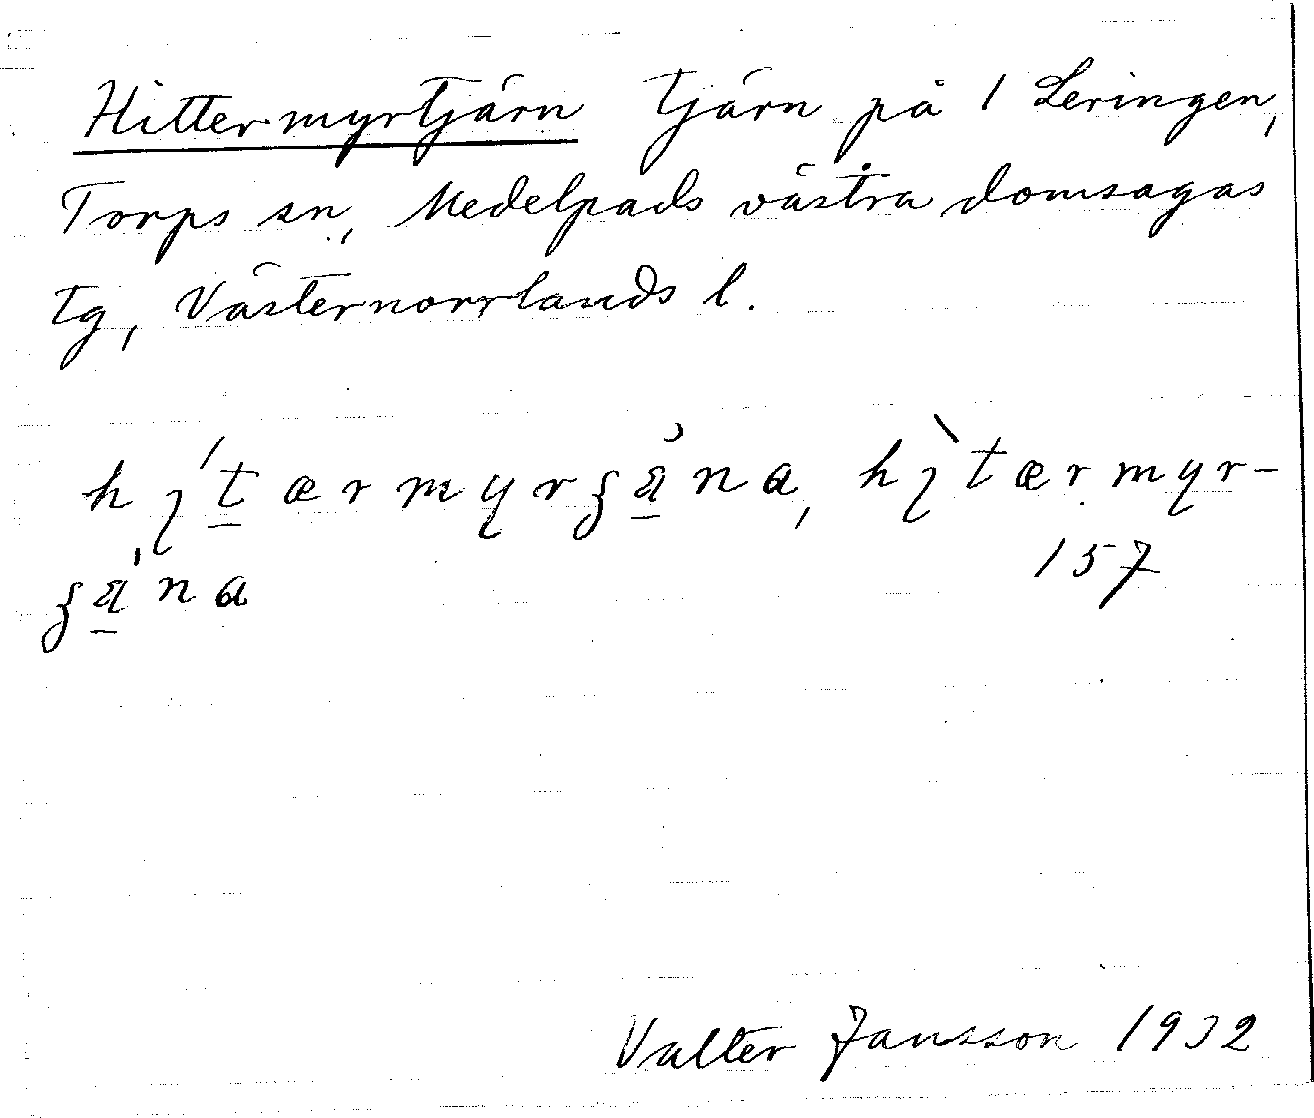 Hittermyrtjärn Tjärn på 1 Leringen,
Torps sn, Medelpads västra domsagas
tg, Västernorrlands l.
157
Valter Jansson 1932